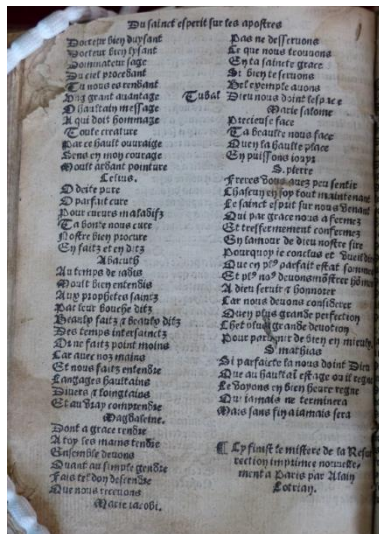 Du sainct esperit sur les apostres
Docteur bien duysant
Docteur bien lysant
Dominateur sage
Du ciel procedant
Tu nous es rendant
Ung grant auantage
O haultain message
A qui doit hommage
Toute creature
Par ce hault ouuraige
Sens en mon courage
Moult ardant pointure
Celius.
O deite pure
O parfait cure
Pour cueurs maladifz
Ta bonte nous cure
Nostre bien procure
En faitz et en ditz
Abacuth
Au temps de iadis
Moult bien entendis
Aux prophetes sainctz
Par leur bouche ditz
Beaulx faitz & beaulx ditz
Des temps
Que faitz point moins
Car auec noz mains
Et nous faitz entendre
Langages haultains
Diuers & loingtains
Et au vray comprendre
Magdaleine.
Dont a grace rendre
A toy les mains tendre
Ensemble deuons
Quant au simple gendre
Fais tel don descendre
Que nous receuons
Marie iacobi.
Pas ne desseruons
Ce que nous trouuons
En ta saincte grace
Si bien te seruons
Bel exemple auons
Tubal Dieu nous doint
Marie salome
Precieuse face
Ta beaulte nous face
Quen la haulte place
En puissons iouyr
S. pierre
Freres vous auez peu sentir
Chascun en soy tout maintenant
Le sainct esprit sur nous venant
Qui par grace nous a fermez
Et tresfermement confermez
En lamour de dieu nostre sire
Pourquoy ie conclus et
Que en plꝰ parfait estat sommes
Et plꝰ noꝰ deuons monstrer hommes
A dieu seruir & honnorer
Car nous deuons considerer
Quen plus grande perfection
Chet plus grande deuotion
Pour parler de bien en mieulx
S. mathias
Si parfaicte la nous doint Dieu
Que au haultal estage ou il regne
Le voyons en bien heure regne
Qui iamais ne terminera
Mais sans fin a iamais sera
¶ Cy finist le mistere de la Resur
rection imprimee nouuelle-
ment a Paris par Alain
Lotrian.